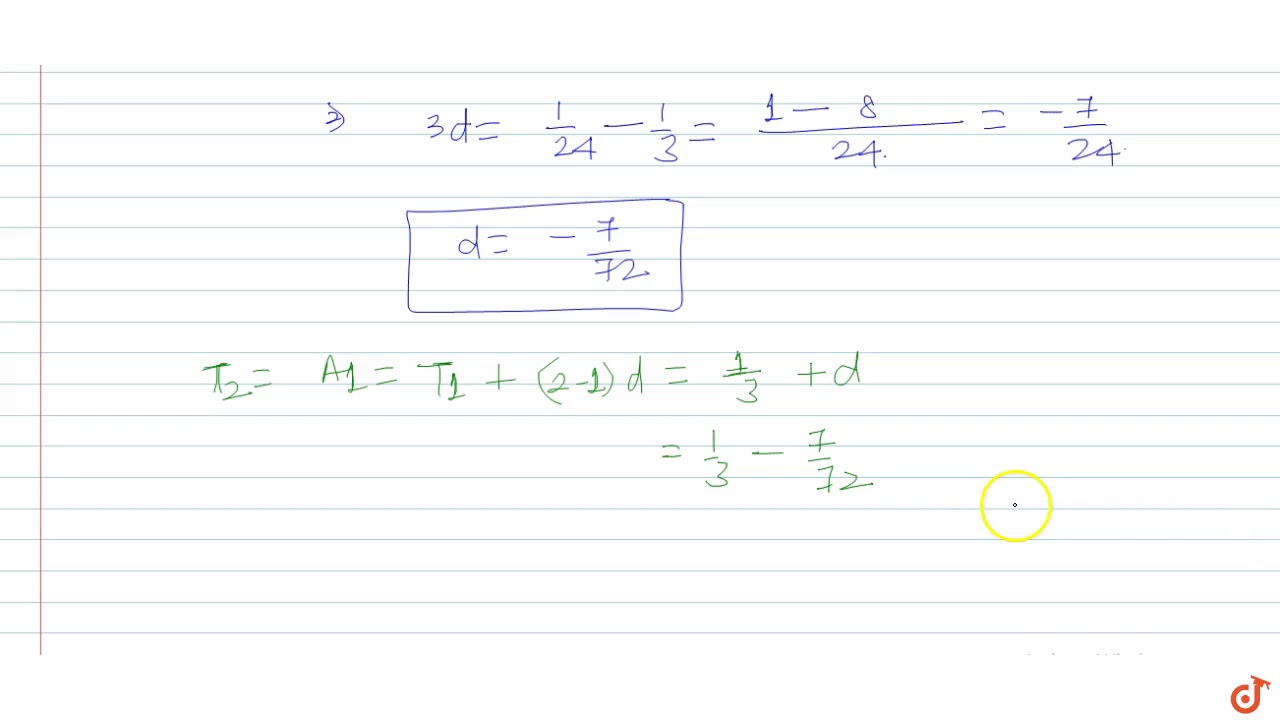 ⇒ 3d = 1/24 - 1/3 = (1 - 8)/24. = -7/24.
d = -7/72
T2 = A1 = T1 + (2-1)d = 1/3 + d
= 1/3 - 7/72